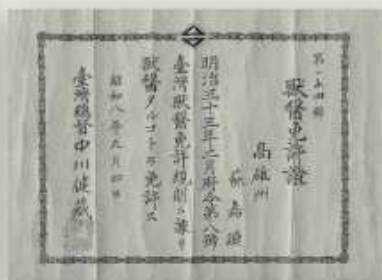 獸醫免許證
高雄州
明治三十三年二月府令第八號
臺灣獸醫免許規則ニ據リ
獸醫タルコトヲ免許ス
昭和八年九月四日
臺灣總督中川健藏